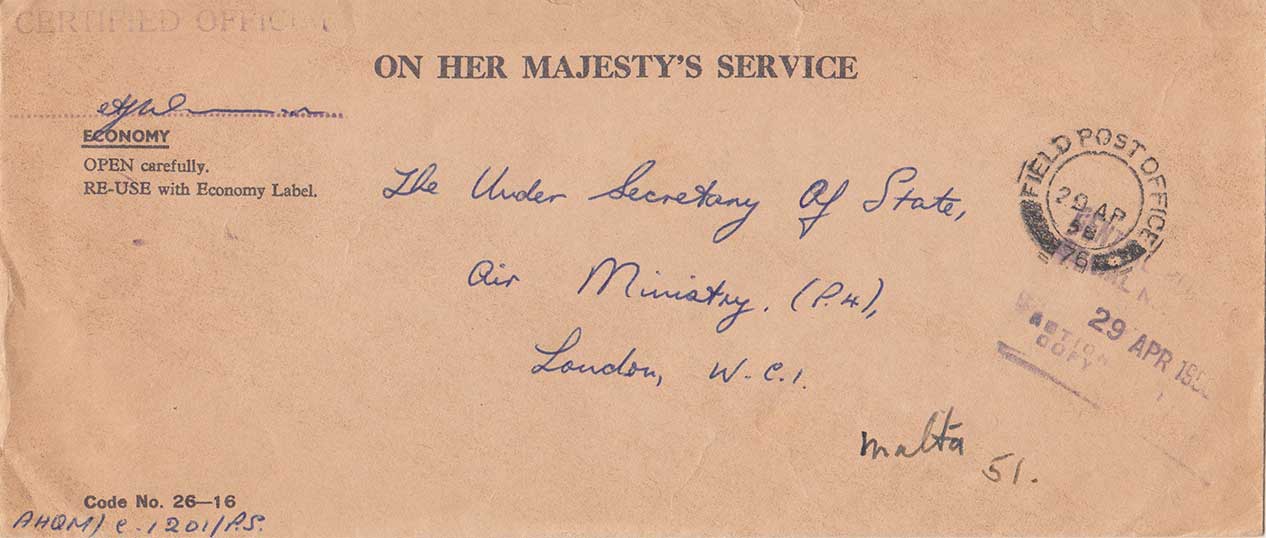 CERTIFIED OFFICIAL
ON HER MAJESTY'S SERVICE
ECONOMY
OPEN carefully.
RE-USE with Economy Label.
The Under Secretary Of State,
Air Ministry. (P.4),
London, W.C.1.
FIELD POST OFFICE
29 AP
58
76
29 APR 195
ACTION
COPY
Malta 51.
Code No. 26—16
AHQM/C.1201/P.S.